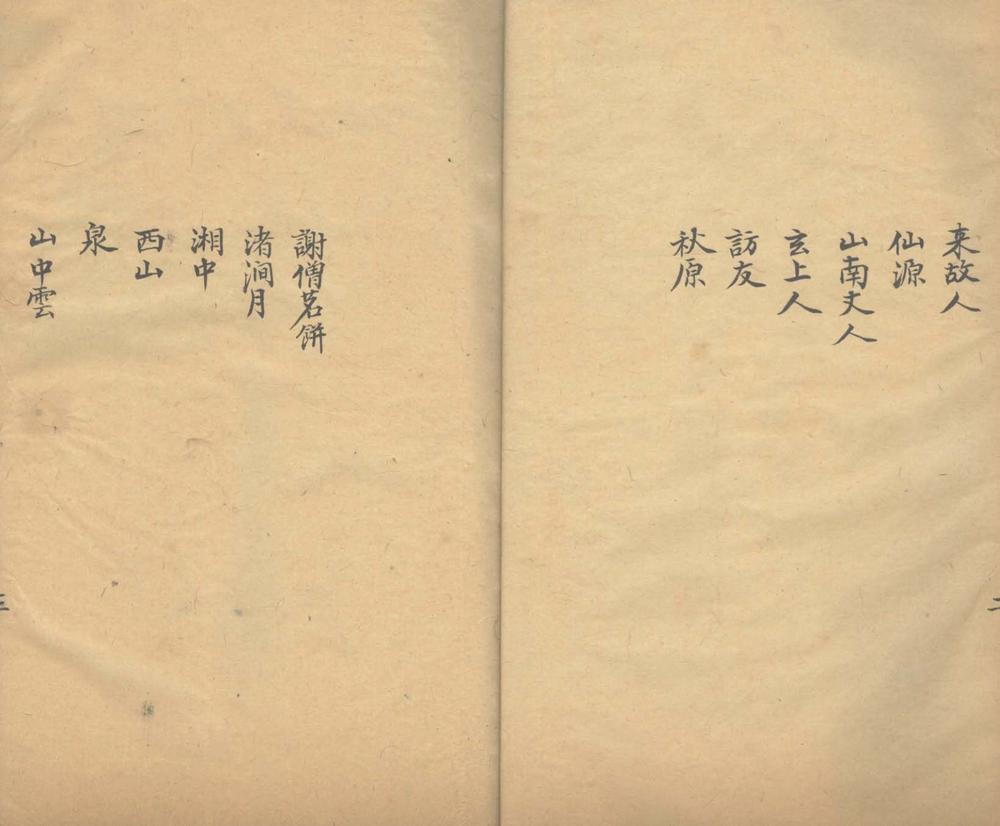 来故人
仙源
山南丈人
玄上人
訪友
秋原
二
謝僧茗餅
渚澗月
湘中
西山
泉
山中雲
三